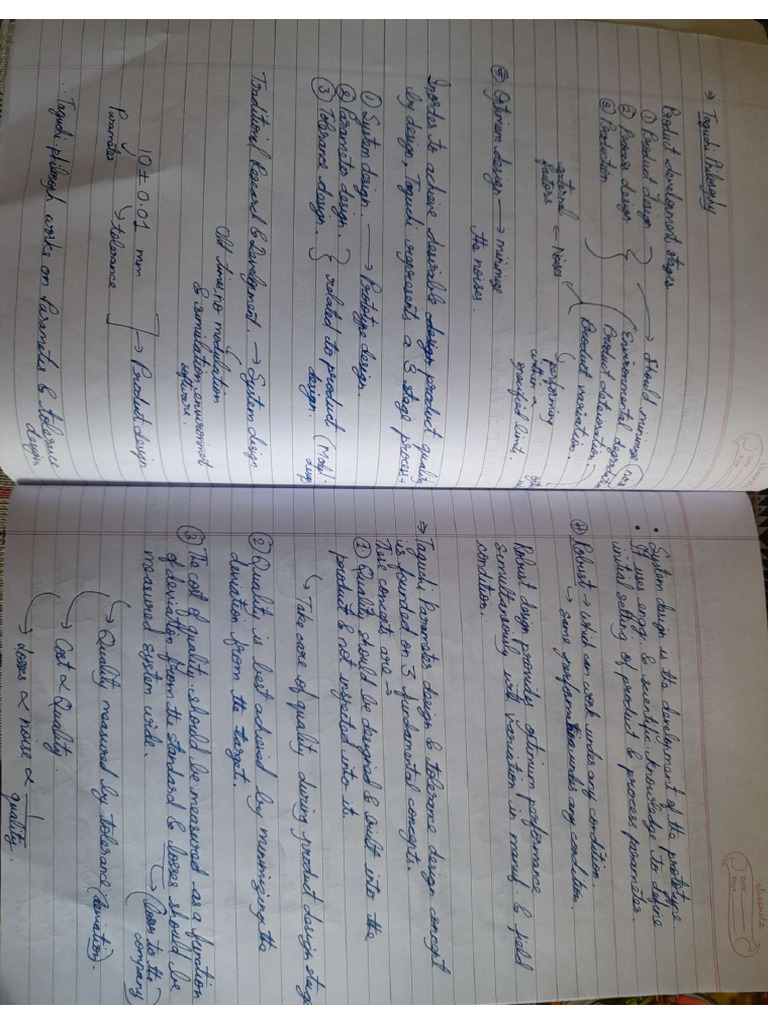 ⇒ Taguchi Philosophy
Product development stages
① Product design
② Process design
③ Production
→ Should minimize
Environmental
Product deterioration,
Product variation.
external ← Noises
factors
↳ performing
within a
specified limit.
Optimum design → minimize
the noises.
Inorder to achieve desirable design product quality
by design, Taguchi represents a 3 stage process
① System design. → Prototype design.
② Parametric design.
③ Tolerance design.
related to product
design.
Traditional Research & Development. → System design
Old time, no modulation
& simulation environment
software.
10 ± 0.01 mm
Parameter
↳ tolerance
→ Product design
∴ Taguchi philosophy works on Parameter & tolerance
design
classmate
Date
Page
• System design is the development of the prototype
• It uses engg. & scientific knowledge to define
initial setting of product & process parameter.
Robust → which can work under any condition.
→ same performance under any condition.
Robust design provides optimum performance
simultaneously with variation in manuf & field
condition.
⇒ Taguchi Parameter design & tolerance design concept
is founded on 3 fundamental concepts.
These concepts are →
① Quality should be designed & built into the
product & not inspected into it.
↳ Take care of quality during product design stage
② Quality is best achieved by minimizing the
deviation from the target.
③ The cost of quality should be measured as a function
of deviation from the standard & losses should be
measured system wide.
↳ Losses to the
company
→ Quality measured by tolerance (deviation).
→ Cost ∝ Quality.
→ losses ∝ noise ∝ 1/quality.